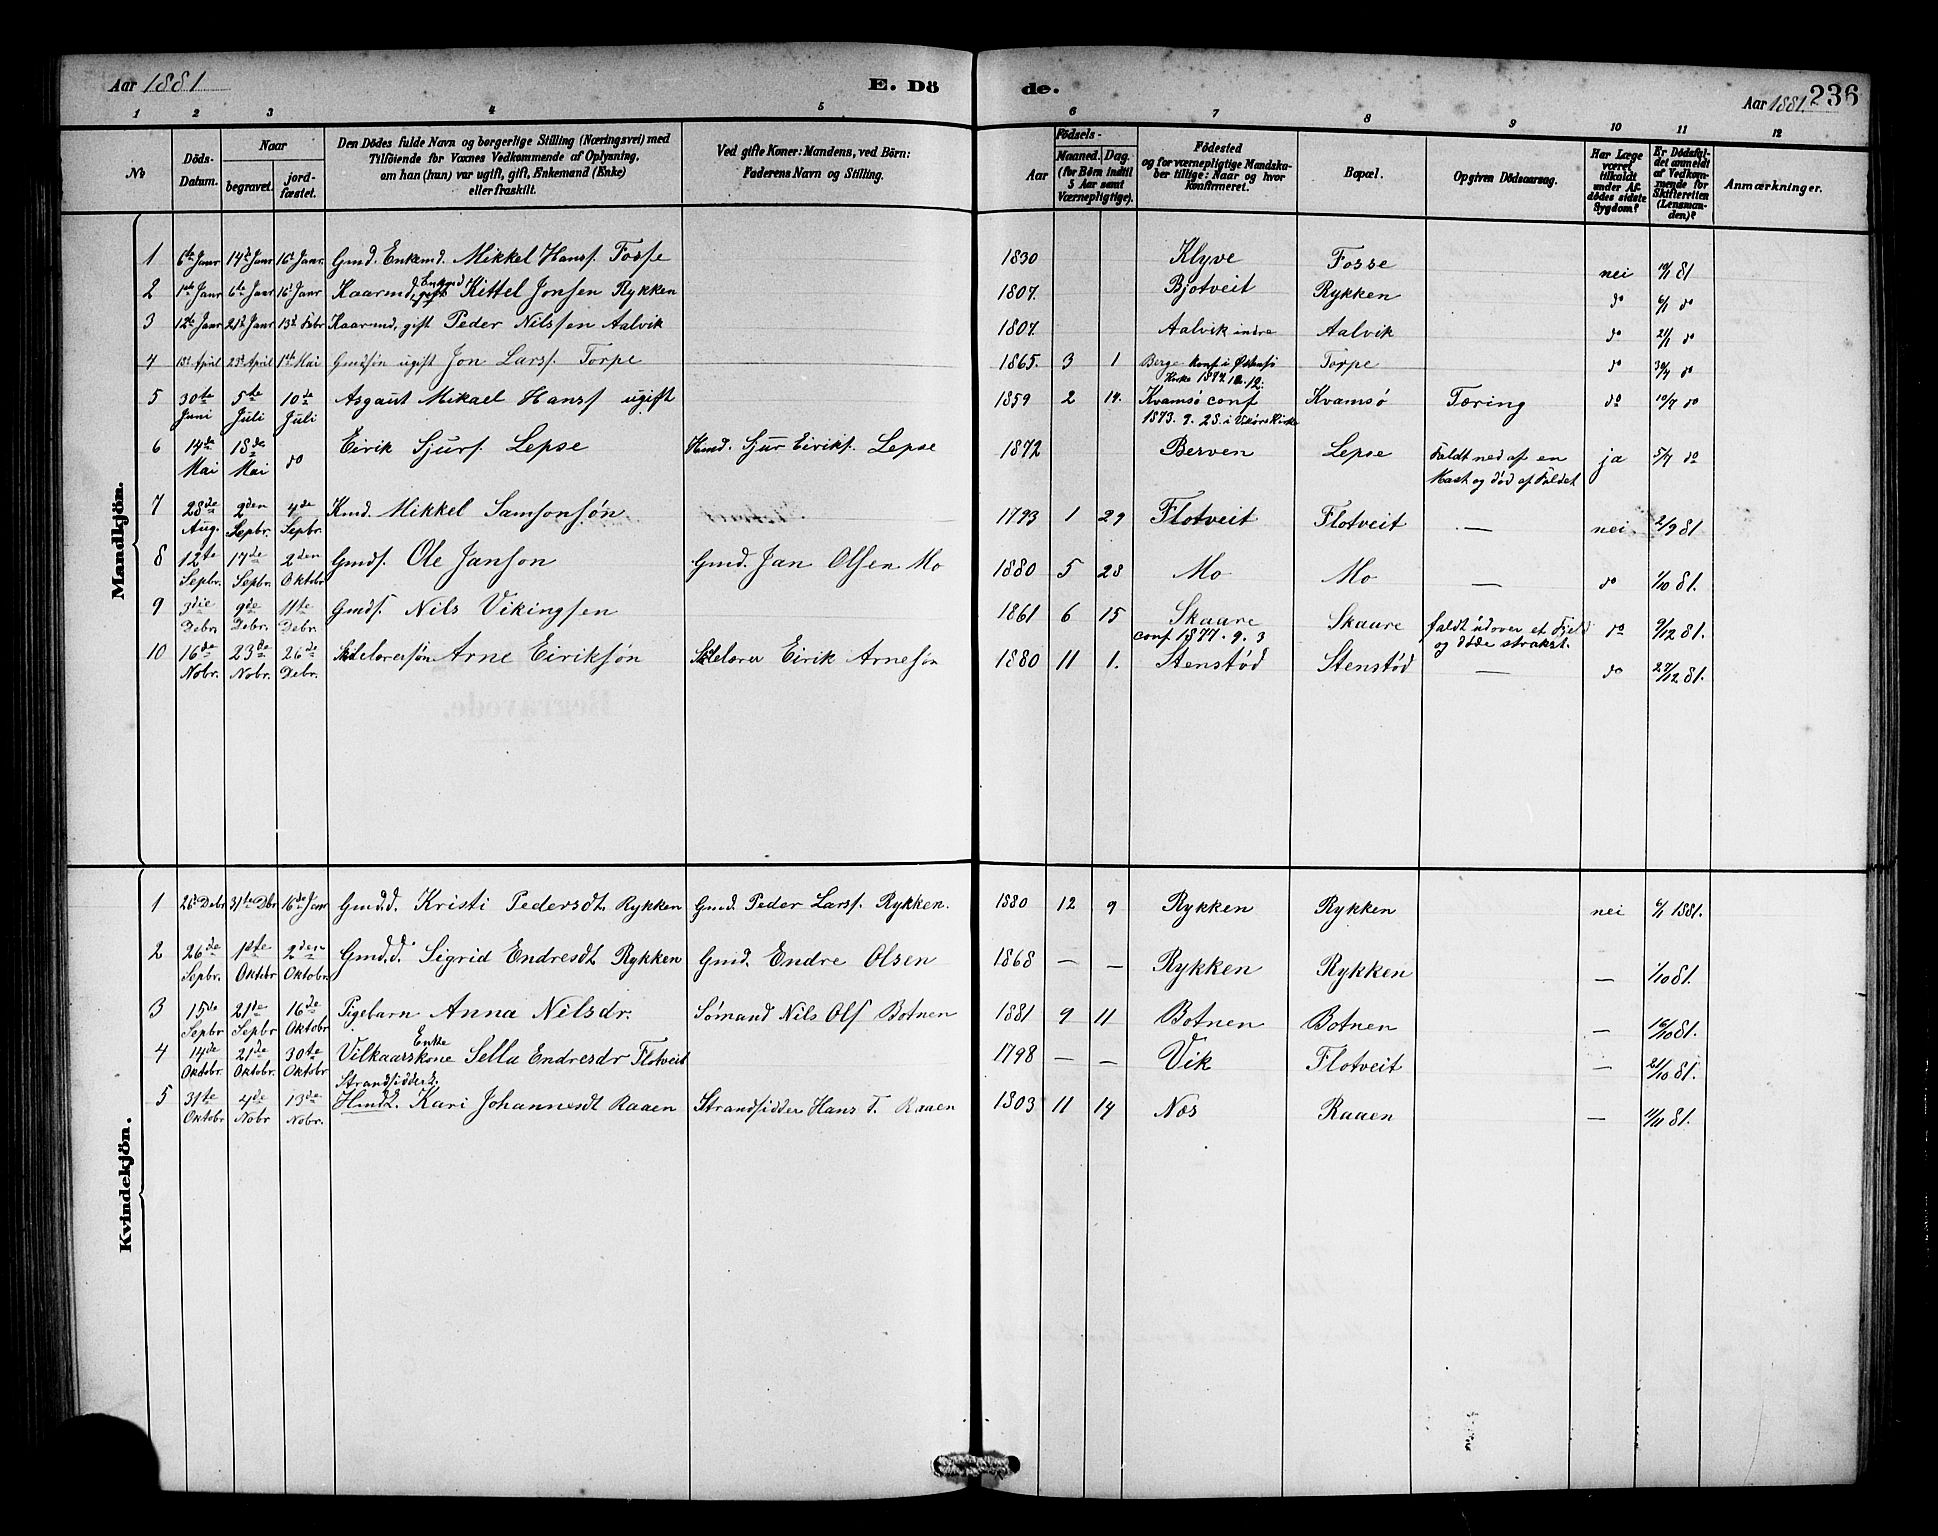 Aar 1881 E. Dö de. Aar 1881. 236
1 2 3 4 5 6 7 8 9 10 11 12
No
Döds-Datum.
Naar
begravet.
jord-fæstet.
Den Dödes fulde Navn og borgerlige Stilling (Næringsvei) med
Tilföiende for Voxnes Vedkommende af Oplysning,
om han (hun) var ugift, gift, Enkemand (Enke)
eller fraskilt.
Ved gifte Koner: Mandens, ved Börn:
Faderens Navn og Stilling.
Födsels-
Aar Maaned. Dag.
(for Börn indtil
5 Aar samt
Værnepligtige).
Födested
og for værnepligtige Mandska-
ber tillige: Naar og hvor
konfirmeret.
Bopæl.
Opgiven Dödsaarsag.
Har Læge
været
tilkaldt
under Af-
dödes sidste
Sygdom?
Er Dödsfal-
det anmeldt
af Vedkom-
mende for
Skifteretten
(Lensman-
den)?
Anmærkninger.
Mandkjön.
1 6te Janr 14de Janr 16d Janr. Gmd. Enkemd. Mikkel Hansf. Fosse 1830 Klyve Fosse nei 14/1 81
2 1ste Janr 6te Janr 16d Janr Kaarmd, gift Enkemd Kittel Jonsen Rykken 1807. Bjotveit Rykken do 6/1 do
3 12te Janr 21d Janr 13d Febr Kaarmd, gift Peder Nilssen Aalvik 1807. Aalvik indre Aalvik do 21/1 do
4 18d April 23d April 1ste Mai Gmdsøn ugift Jon Larsf. Torpe 1865. 3 1 Berge Konf. i Østensø Torpe do do
Kirke
5 30te Juni 5te Juli 10de Juli Asgaut Mikael Hansf ugift 1859 2 14. Kvamsø conf Kvamsø Tæring do 10/7 do
1873. 9. 28. i Vikørs Kirke
6 14de Mai 18de Mai do Eirik Sjursf. Lepse Hmd. Sjur Eiriksf. Lepse 1872 Berven Lepse Faldt ned af en ja 5/7 do
Mast og död af Faldet
7 28de Aug. 2den Sepbr. 4de Sepbr Kmd. Mikkel Samsonsøn 1793 1 29 Flotveit Flotveit — nei 2/9 81
8 12te Sepbr. 17de Sepbr. 2den Oktobr Gmdsf. Ole Janson Gmd. Jan Olsen Mo 1880 5 28 Mo Mo — do 1/10 81.
9 3die Debr. 9de Debr. 11te Debr. Gmdsf. Nils Vikingsen 1861 6 15 Skaare Skaare faldt udover et Fjeld do 9/12 81.
conf 1877. 9. 3 og döde strakst.
10 16de Nobr. 23de Nobr. 26de Debr. Skolelærersøn Arne Eiriksøn Skolelærer Eirik Arnesøn 1880 11 1. Stenstød Stenstød — do 27/12 81.
Kvindekjön.
1 26d Debr 31te Dbr 16de Janr Gmd.d. Kristi Pedersdt. Rykken Gmd. Peder Larsf. Rykken. 1880 12 9 Rykken Rykken nei 6/1 1881.
2 26de Sepbr. 1ste Oktobr 2den Oktobr. Gmd.d. Sigrid Endresdt Rykken Gmd. Endre Olsen 1868 — — Rykken Rykken — 1/10 81.
3 15de Sepbr 21de Sepbr 16de Oktobr Pigebarn Anna Nilsdr. Sømand Nils Olf Botnen 1881 9 11 Botnen Botnen — 16/10 81.
4 14de Oktobr 21de Oktobr. 30te Oktobr. Vilkaarskone Enke Sella Endresdr Flotveit 1798 — — Vik Flotveit — 21/10 81.
Strandsidderk.
5 31te Oktobr 4de Nobr 13de Nobr. Hmdk. Kari Johannesdt Raaen Strandsidder Hans T. Raaen 1803 11 14 Næs Raaen — 11/11 81.